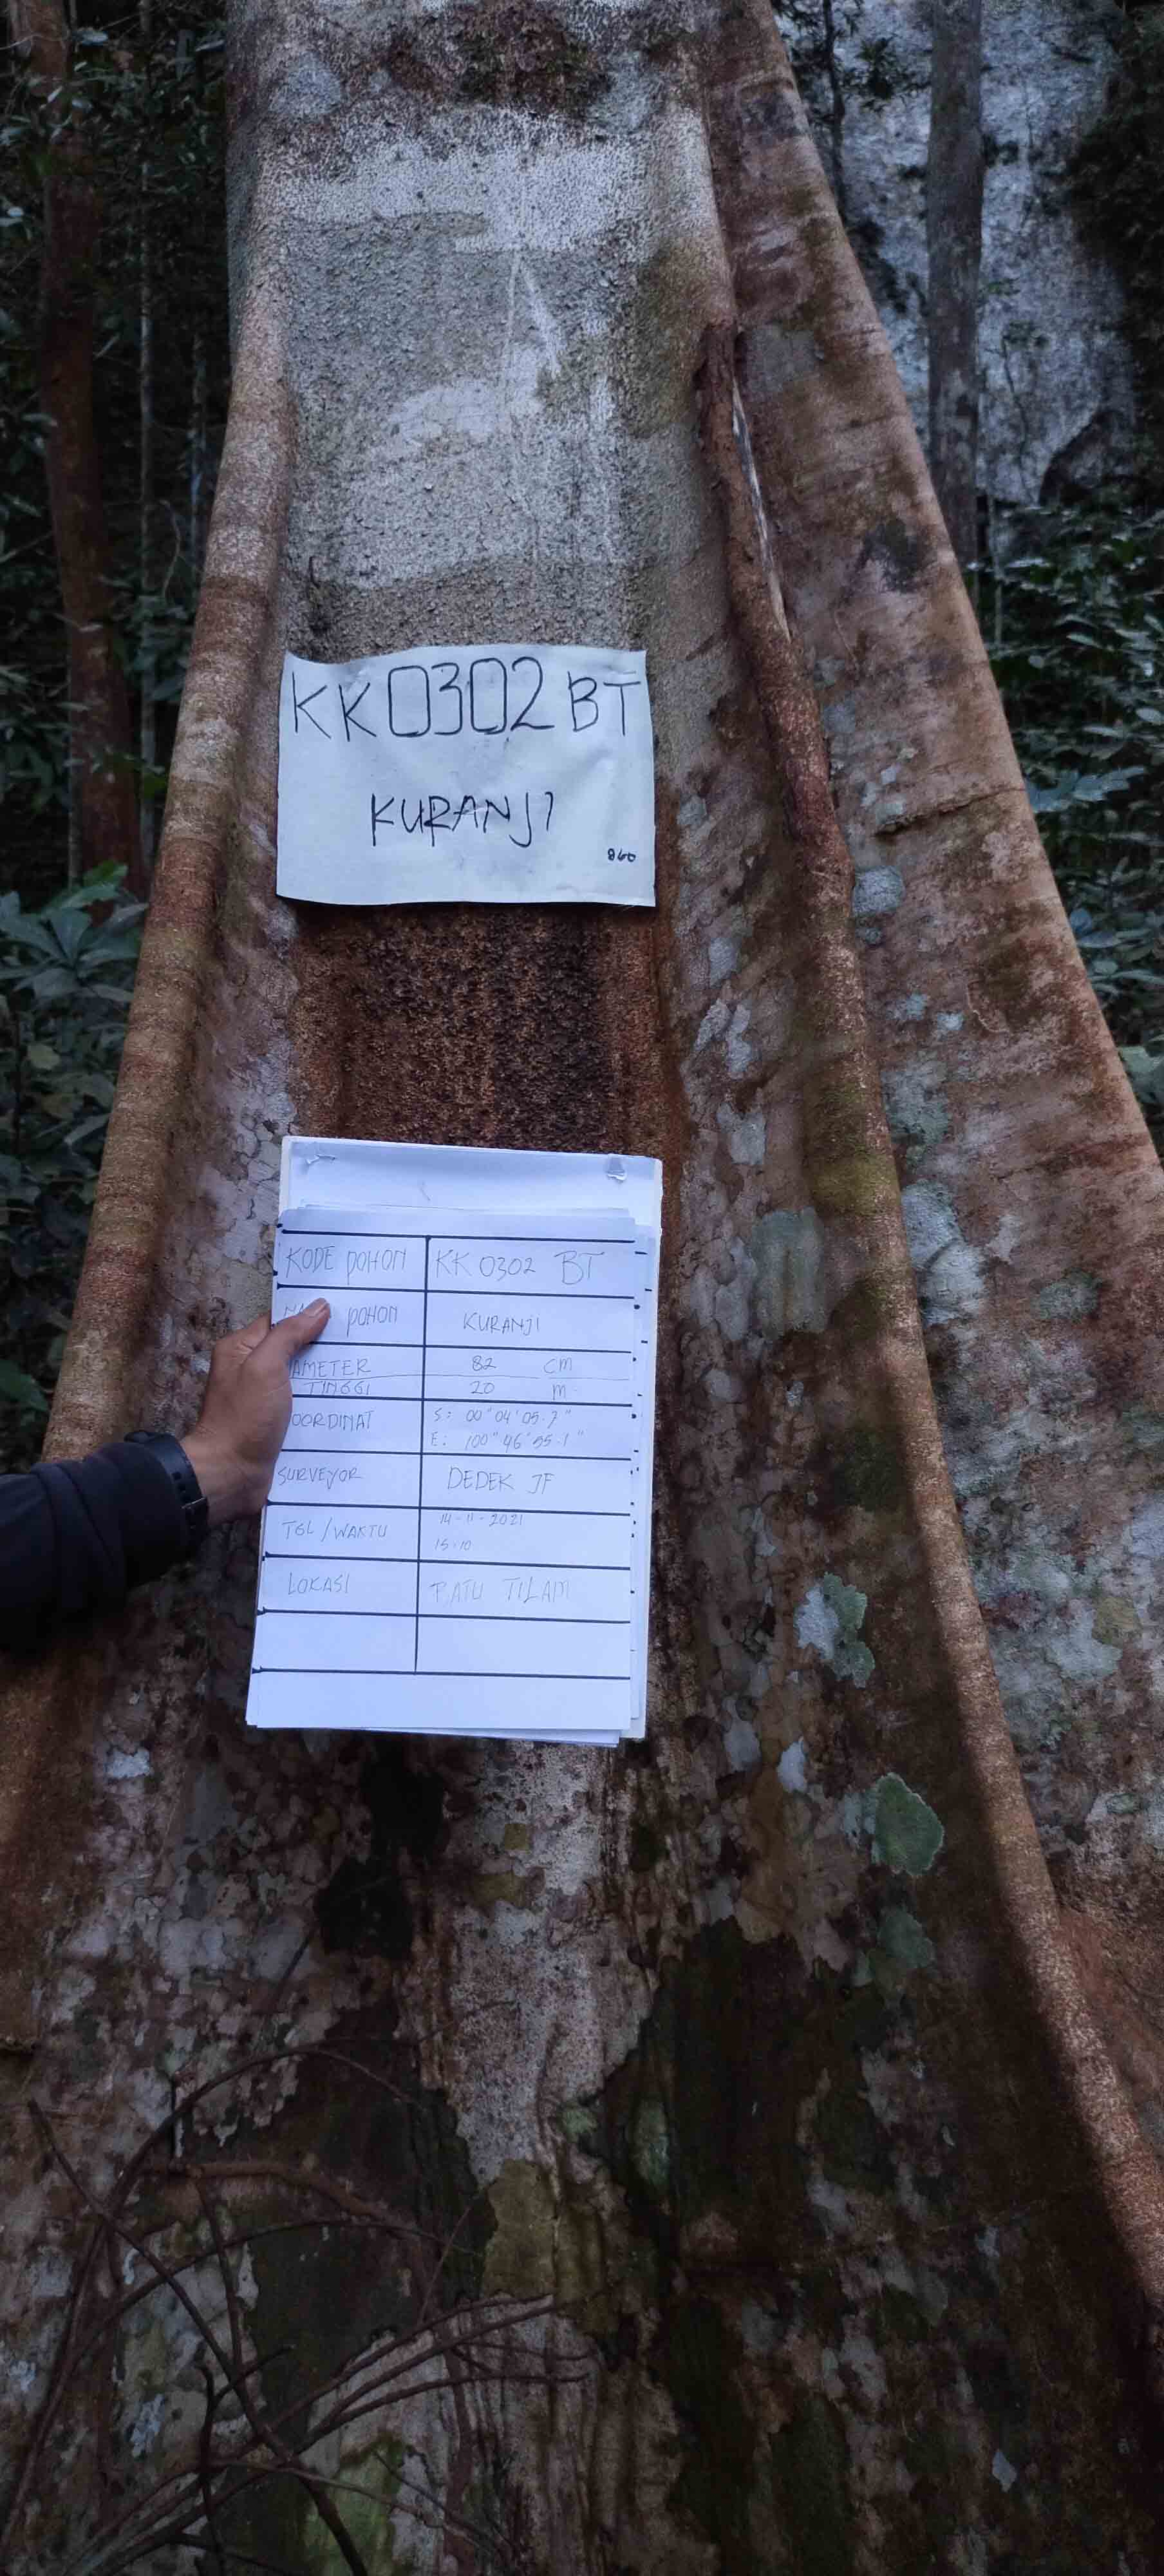 KK0302 BT
KURANJI
860
KODE POHON KK 0302 BT
POHON KURANJI
AMETER 82 CM
TINGGI 20 M
OORDINAT S: 00"04'05.7"
E: 100"46'55.1"
SURVEYOR DEDEK JF
TGL/WAKTU 14-11-2021
15.10
LOKASI BATU TILAM